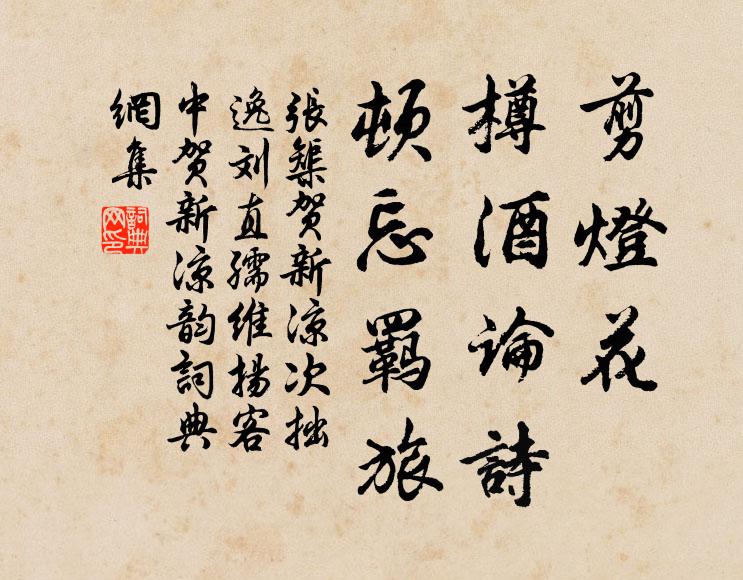 剪燈花
樽酒論詩
頓忘羁旅
張榘贺新凉次拙
逸刘直孺维揚客
中贺新凉韵詞典
網集
詞典网印